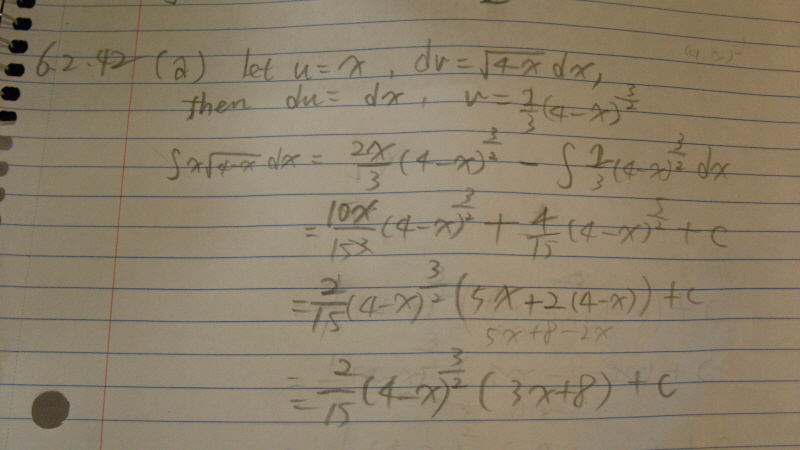 6.2.42 (2) let u = x, dv = √4-x dx,
then du = dx, v = 2/3 (4-x)^3/2
∫x√4-x dx = 2x/3 (4-x)^3/2 - ∫ 2/3 (4-x)^3/2 dx
= 10x/15 (4-x)^3/2 + 4/15 (4-x)^5/2 + c
= 2/15 (4-x)^3/2 (5x+2(4-x)) + c
5x+8-2x
= 2/15 (4-x)^3/2 (3x+8) + c